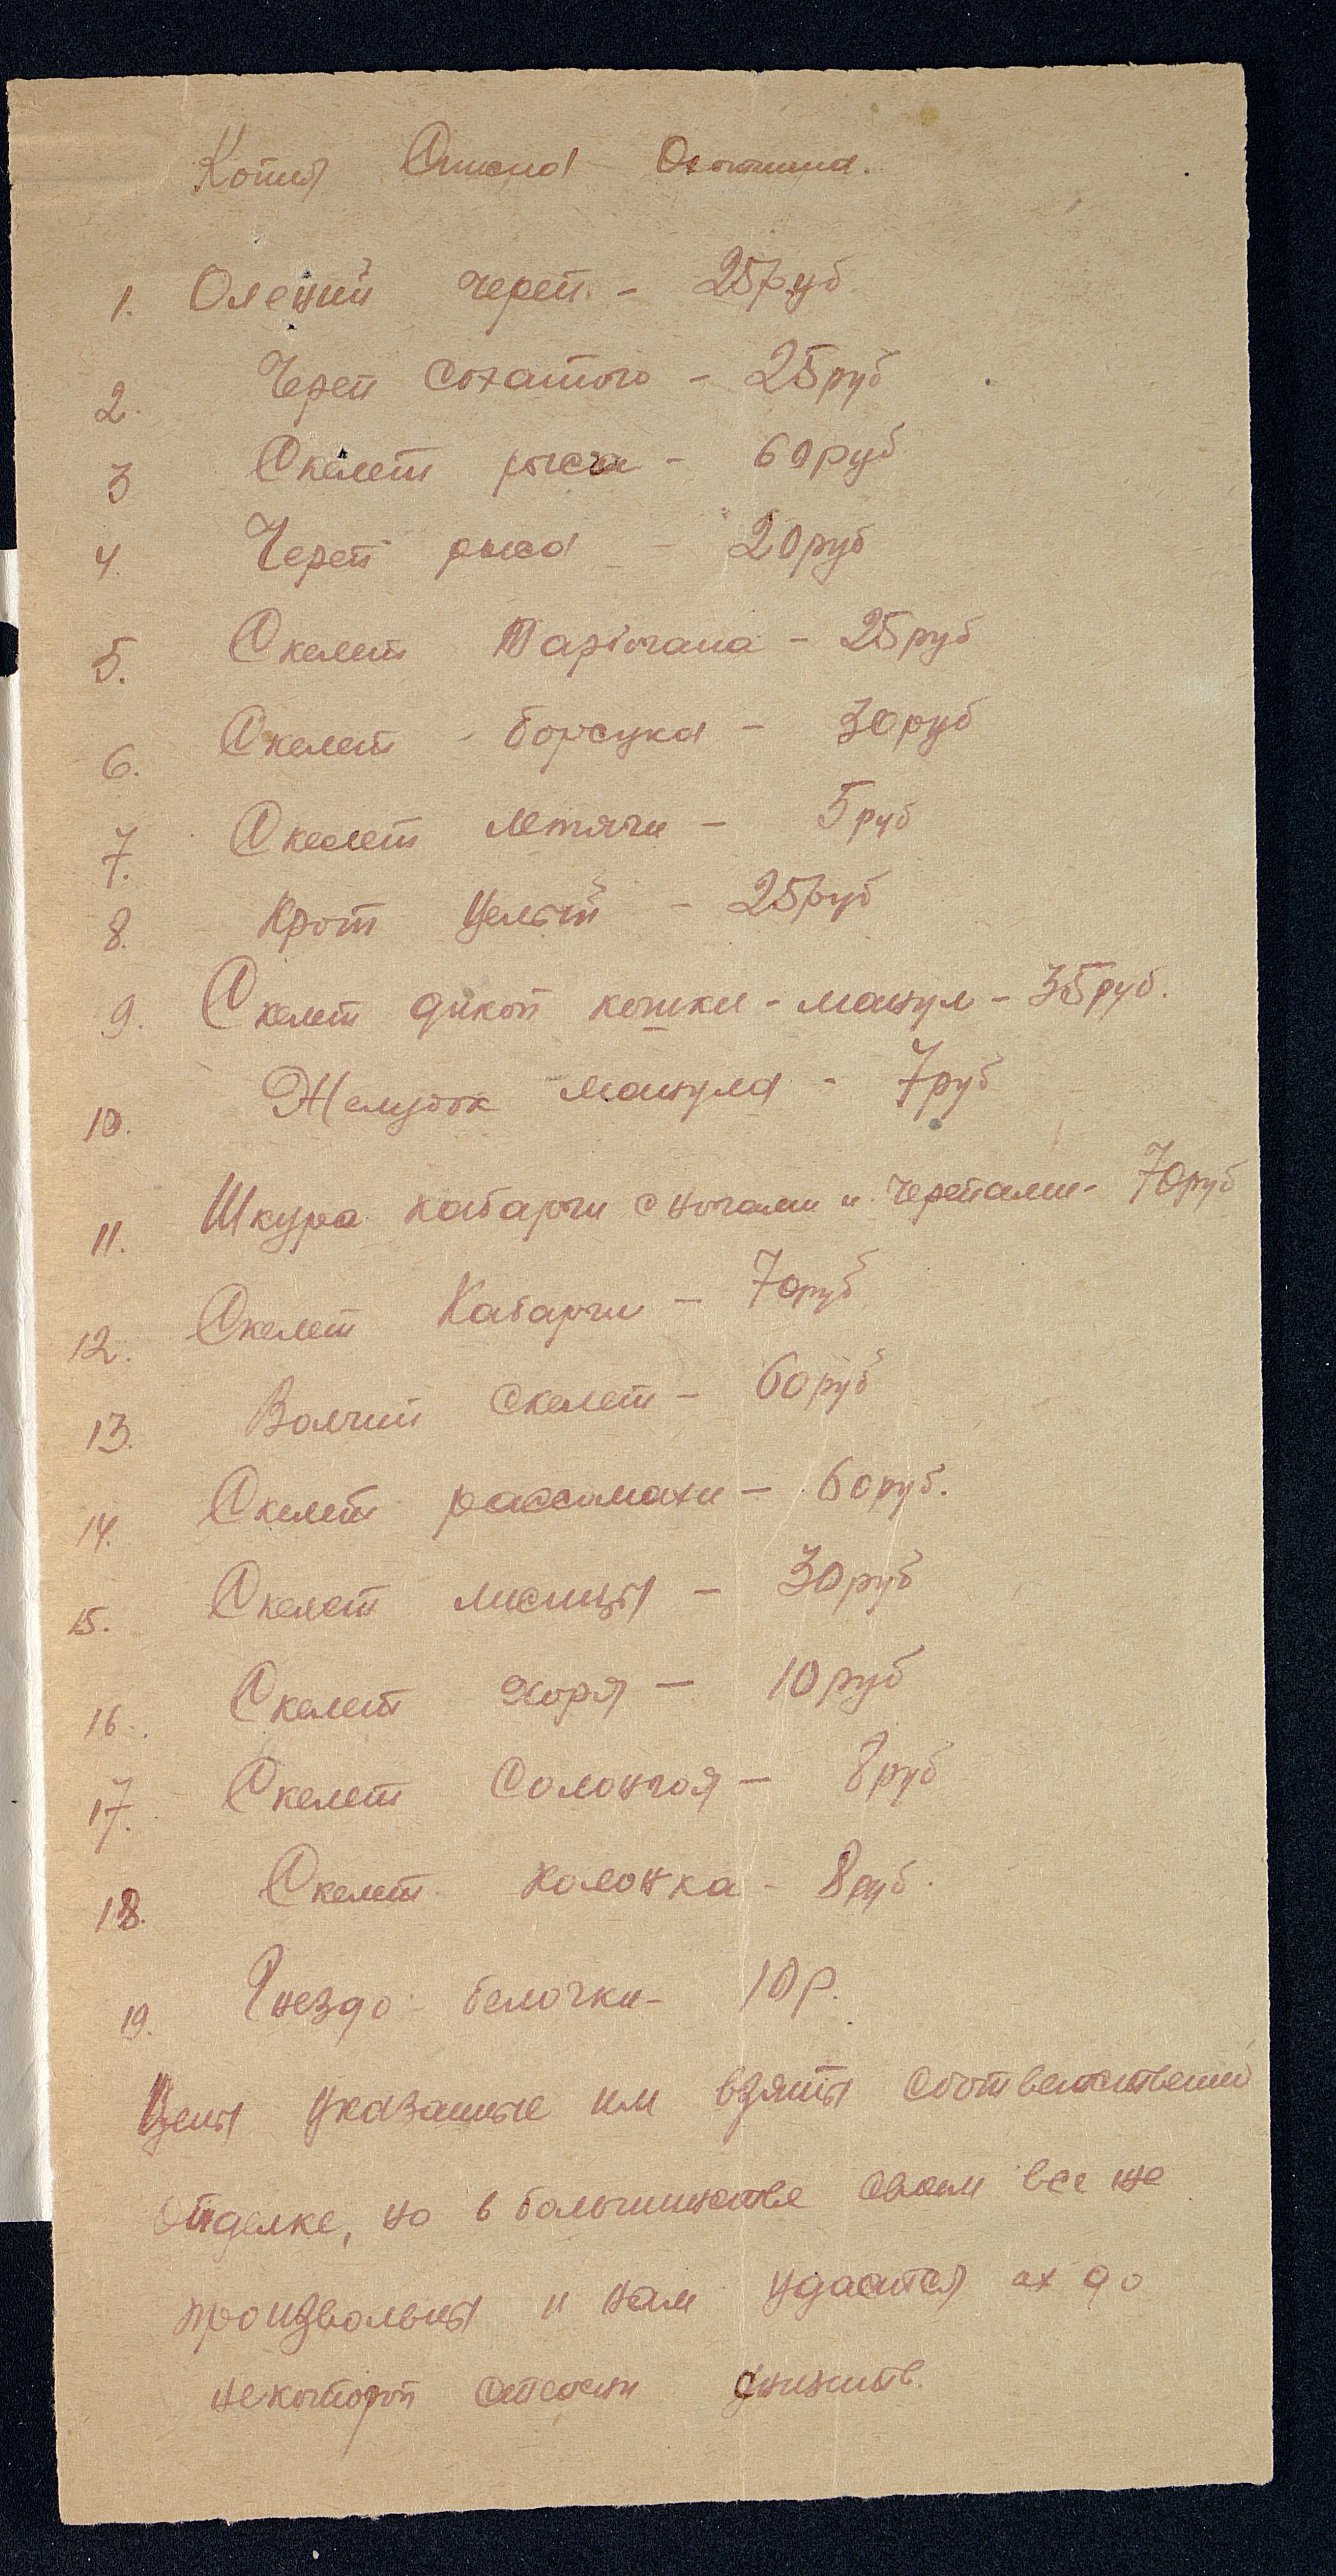 Копия Списка Охотника.
1. Олений череп. - 25руб
2. Череп Сохатого - 25руб
3 Скелет рыси - 60руб
4. Череп рыся - 20руб
5. Скелет Тарбогана - 25руб
6. Скелет - борсука - 30руб
7. Скелет летяги - 5руб
8. Крот Целый - 25руб
9. Скелет дикой кошки - манул - 35руб.
10. Желудок манула - 7руб
11. Шкура кабарги с ногами и черепами - 70руб
12. Скелет Кабарги - 70руб
13. Волчий скелет - 60руб
14. Скелет рассомахи - 60руб.
15. Скелет лисицы - 30руб
16. Скелет хоря - 10руб
17. Скелет Солонгоя - 8руб
18. Скелет колонка - 8руб.
19. Гнездо белочки - 10р.
Цены указанные им взяты соответственно
отделке, но в большинстве своем все же
произвольны и нам удастся их до
некоторой степени снизить.